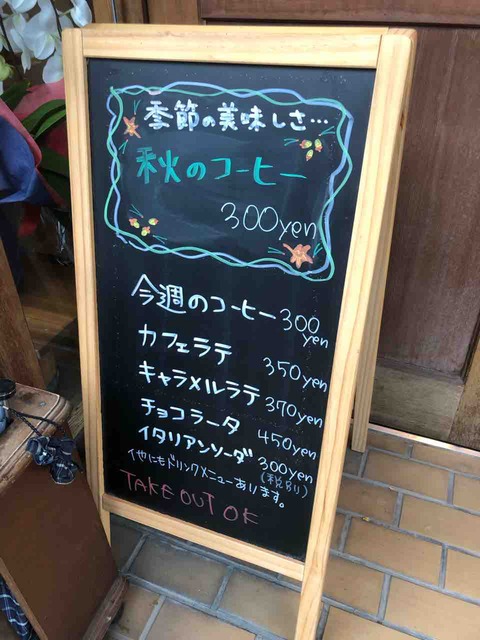 季節の美味しさ…
秋のコーヒー
300yen
今週のコーヒー 300yen
カフェラテ 350yen
キャラメルラテ 370yen
チョコラータ 450yen
イタリアンソーダ 300yen
(税別)
他にもドリンクメニューあります。
TAKE OUT OK